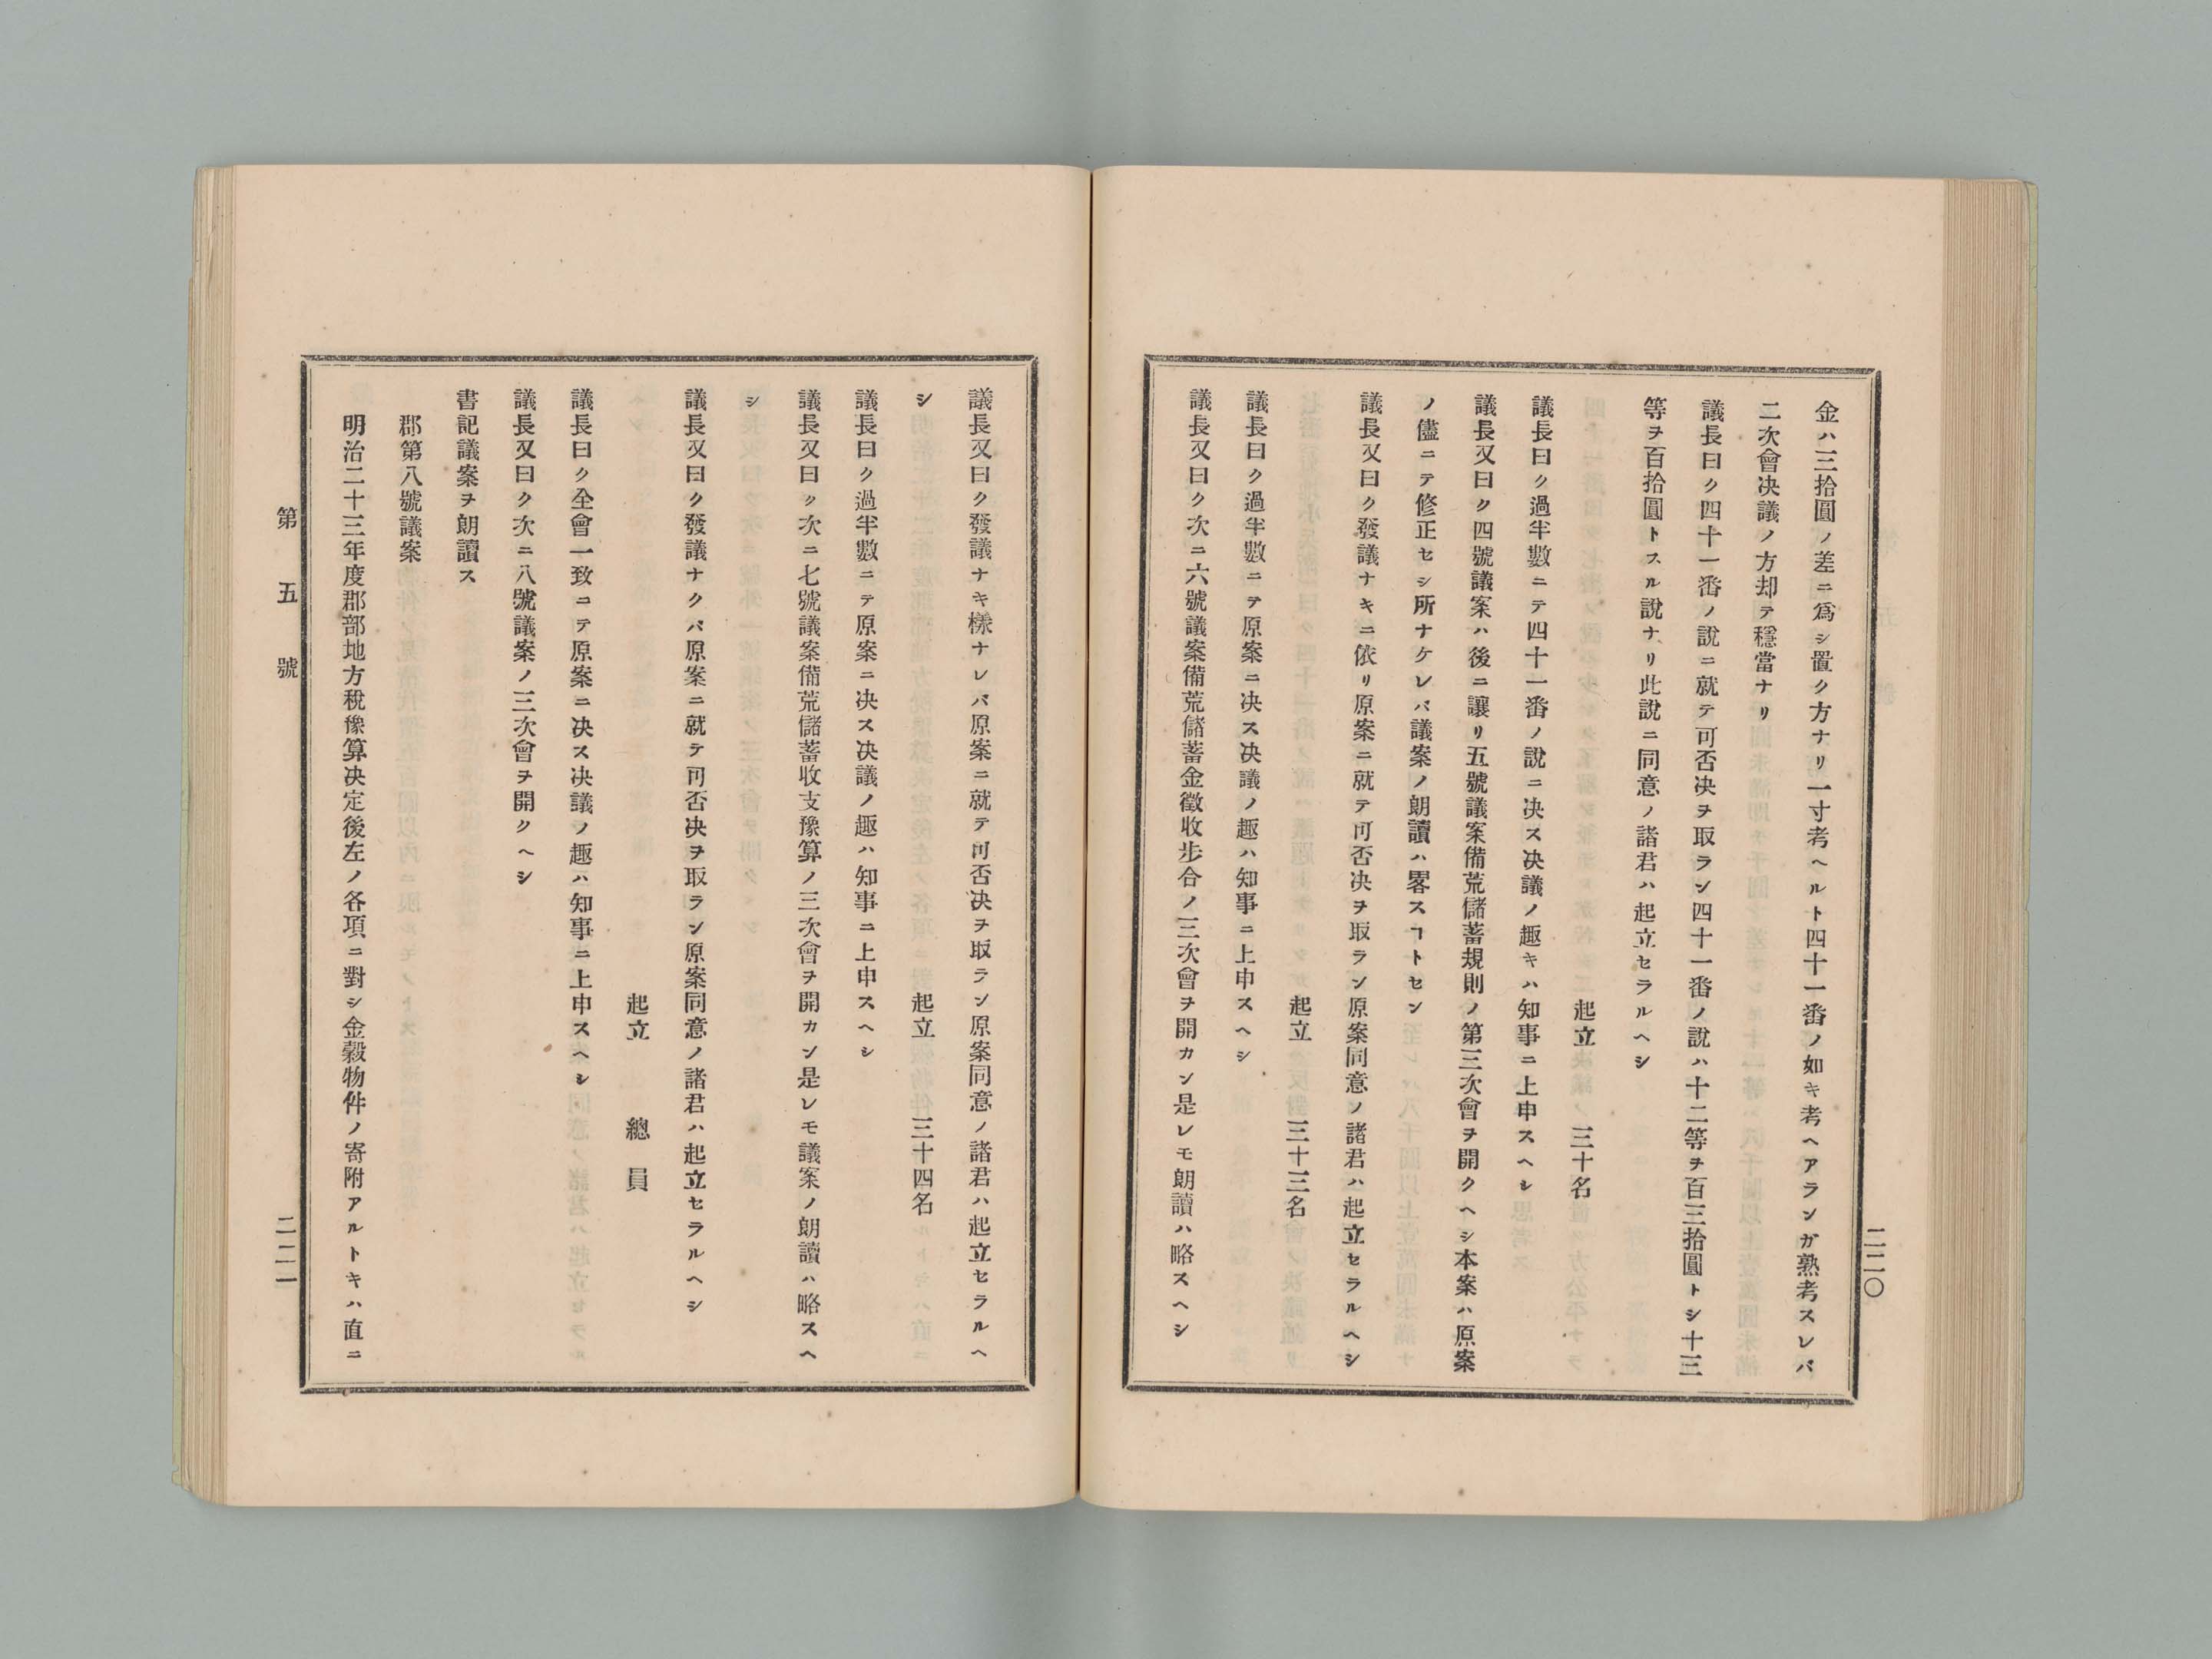 金ハ三拾圓ノ差ニ爲シ置ク方ナリ一寸考ヘルト四十一番ノ如キ考ヘアランガ熟考スレバ
二次會决議ノ方却テ穩當ナリ
議長曰ク四十一番ノ說ニ就テ可否决ヲ取ラン四十一番ノ說ハ十二等ヲ百三拾圓トシ十三
等ヲ百拾圓トスル說ナリ此說ニ同意ノ諸君ハ起立セラルヘシ
起立　三十名
議長曰ク過半數ニテ四十一番ノ說ニ决ス决議ノ趣キハ知事ニ上申スヘシ
議長又曰ク四號議案ハ後ニ讓リ五號議案備荒儲蓄規則ノ第三次會ヲ開クヘシ本案ハ原案
ノ儘ニテ修正セシ所ナケレバ議案ノ朗讀ハ畧スヿトセン
議長又曰ク發議ナキニ依リ原案ニ就テ可否决ヲ取ラン原案同意ノ諸君ハ起立セラルヘシ
起立　三十三名
議長曰ク過半數ニテ原案ニ决ス决議ノ趣ハ知事ニ上申スヘシ
議長又曰ク次ニ六號議案備荒儲蓄金徵收步合ノ三次會ヲ開カン是レモ朗讀ハ略スヘシ
二二〇
議長又曰ク發議ナキ樣ナレバ原案ニ就テ可否决ヲ取ラン原案同意ノ諸君ハ起立セラルヘ
シ
起立　三十四名
議長曰ク過半數ニテ原案ニ决ス决議ノ趣ハ知事ニ上申スヘシ
議長又曰ク次ニ七號議案備荒儲蓄收支豫算ノ三次會ヲ開カン是レモ議案ノ朗讀ハ略スヘ
シ
議長又曰ク發議ナクバ原案ニ就テ可否决ヲ取ラン原案同意ノ諸君ハ起立セラルヘシ
起立　總員
議長曰ク全會一致ニテ原案ニ决ス决議ノ趣ハ知事ニ上申スヘシ
議長又曰ク次ニ八號議案ノ三次會ヲ開クヘシ
書記議案ヲ朗讀ス
郡第八號議案
明治二十三年度郡部地方稅豫算决定後左ノ各項ニ對シ金穀物件ノ寄附アルトキハ直ニ
第五號
二二一